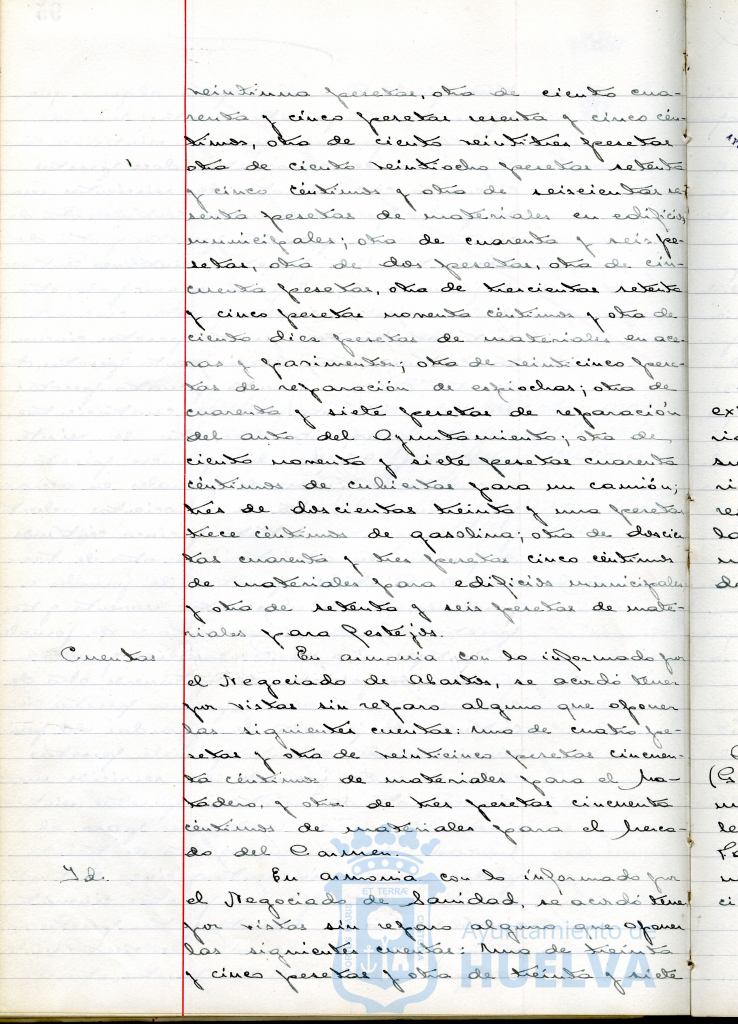 veintiuna pesetas, otra de ciento cua-
renta y cinco pesetas sesenta y cinco cén-
timos, otra de ciento veintitres pesetas
otra de ciento veintiocho pesetas setenta
y cinco céntimos y otra de seiscientas se-
senta pesetas de materiales en edificios
municipales; otra de cuarenta y seis pe-
setas, otra de dos pesetas, otra de cin-
cuenta pesetas, otra de trescientas setenta
y cinco pesetas noventa céntimos y otra de
ciento diez pesetas de materiales en ace-
ras y pavimentos; otra de veinticinco pese-
tas de reparación de espiochas; otra de
cuarenta y siete pesetas de reparación
del auto del Ayuntamiento; otra de
ciento noventa y siete pesetas cuarenta
céntimos de cubiertas para un camión;
tres de doscientas treinta y una pesetas
trece céntimos de gasolina; otra de doscien-
tas cuarenta y tres pesetas cinco céntimos
de materiales para edificios municipales
y otra de setenta y seis pesetas de mate-
riales para festejos.
Cuentas En armonia con lo informado por
el Negociado de Abastos, se acordó tener
por vistas sin reparo alguno que oponer
las siguientes cuentas: Una de cuatro pe-
setas y otra de veinticinco pesetas cincuen-
ta céntimos de materiales para el Ma-
tadero, y otra de tres pesetas cincuenta
céntimos de materiales para el Merca-
do del Carmen.
Id. En armonia con lo informado por
el Negociado de Sanidad, se acordó tener
por vistas sin reparo alguno que oponer
las siguientes cuentas: Una de treinta
y cinco pesetas y otra de treinta y siete
Ayuntamiento de
HUELVA